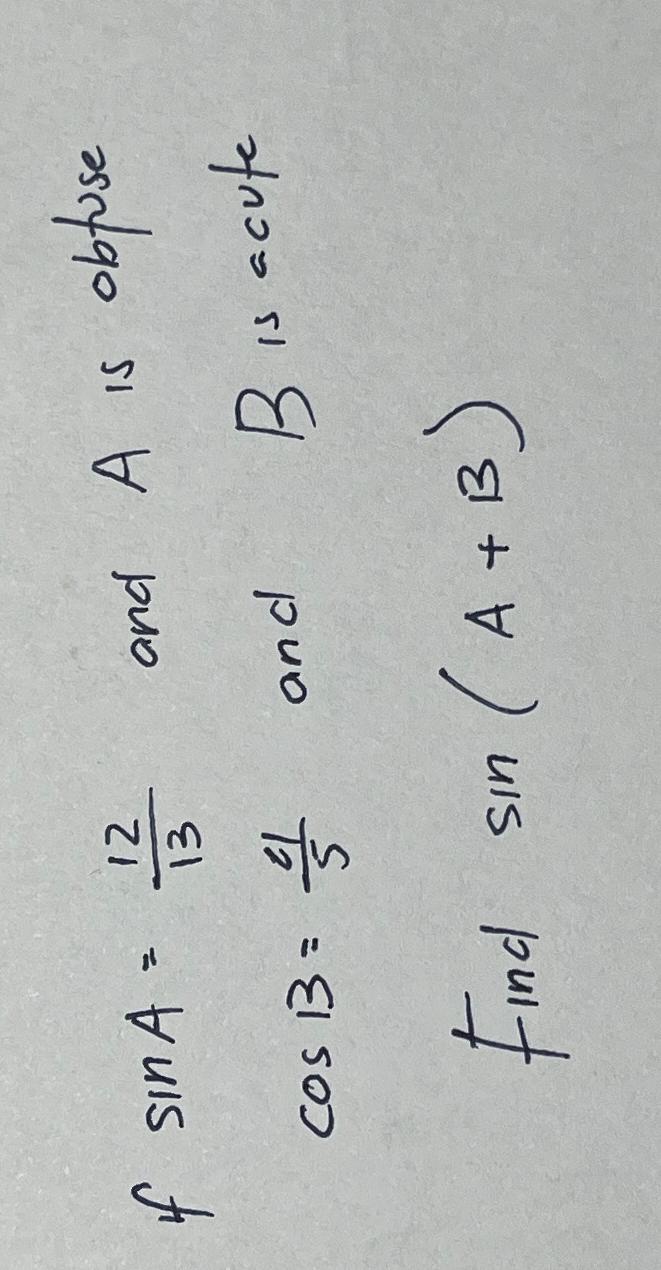 If sin A = 12/13 and A is obtuse
cos B = 4/5 and B is acute
Find sin (A + B)